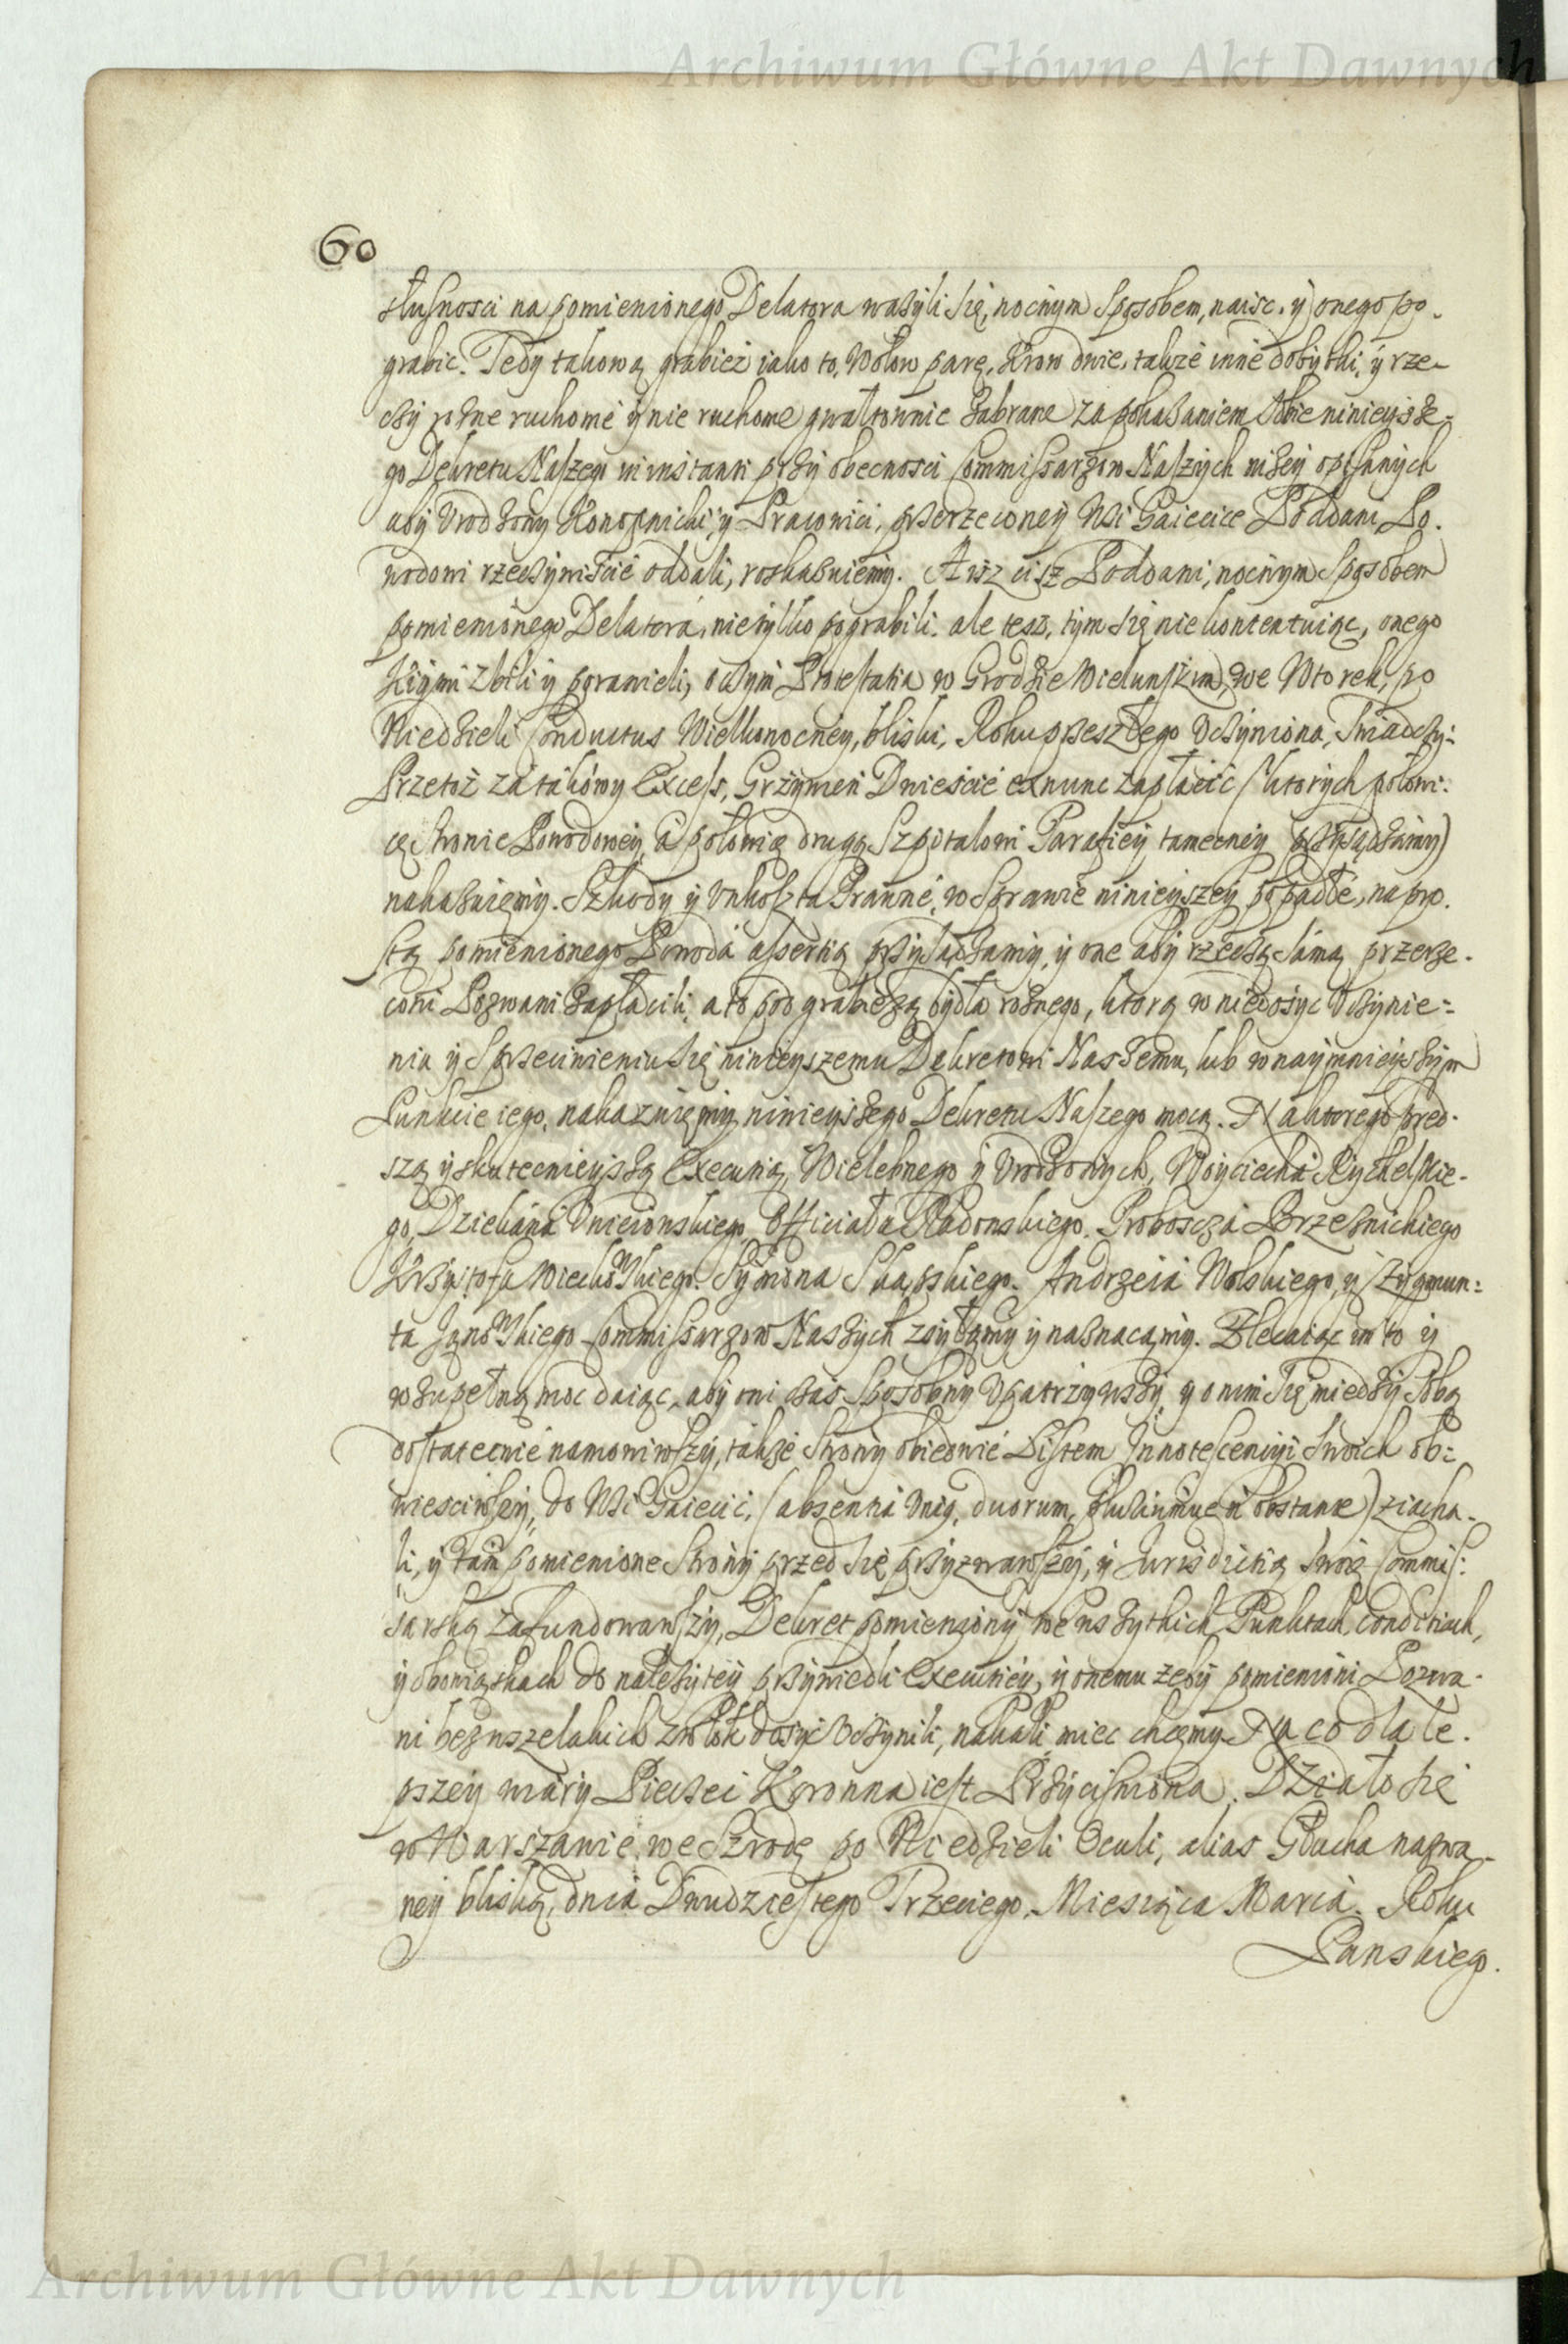 Archiwum Główne Akt Dawnych
60
słusnosci na pomienionego Delatora ważyli się, nocnym sposobem, naisc. y onego po-
grabic. Tedy takową grabież iako to, Wołow parę, Krow dwie, także inne dobytki, y rze-
czy rożne ruchome y nie ruchome gwałtownie zabrane za pokazaniem sobie ninieysze-
go Dekretu Naszego in instanti przy obecnosci Commissarzow Naszych niżey opisanych
aby Vrodzony Konopnicki, y Pracowici, przerzeconey Wsi Gaiecice Poddani Po-
wodowi rzeczywiscie oddali, roskazuiemy. A isz cisz Poddani, nocnym sposobem
pomienionego Delatora, nietylko pograbili. ale tesz, tym się niekontentuiąc, onego
Kiymi zbili y poranieli, o czym Protestatia w Grodzie Wielunskim, we Wtorek, po
Niedzieli Conductus Wielkonocney, bliski, Roku przeszłego Vczyniona, swiadczy:
Przetoż za takowy Excess, Grzywien Dwiescie ex nunc zapłacić (ktorych połowi-
cę stronie Powodowey, a połowię drugą Szpitalowi Parafiey tamecney przysądzamy)
nakazuięmy. Szkody y Vnkoszta Prawne, w Sprawie ninieyszey popadłe, na pro-
stą pomienionego Powoda assertią przysądzamy, y one aby rzeczą samą przerze-
coni Pozwani zapłacili, a to pod grabieżą bydła rożnego, ktorą w niedosyc Vczynie-
nia y Sprzeciwieniu się ninieyszemu Dekretowi Naszemu, lub w naymnieyszym
Punkcie iego, nakazuięmy ninieyszego Dekretu Naszego mocą. Na ktorego pręd-
szą y skutecznieyszą Executią, Wielebnego y Vrodzonych, Woyciecha Rychelskie-
go, Dziekana Vnieionskiego, Officiała Radomskiego, Proboszcza Brzeznickiego
Krzysztofa Wiechowskiego. Symona Skapskiego. Andrzeia Wolskiego, y Zygmun-
ta Janowskiego Commissarzow Naszych zsyłamy y naznacamy. Zlecaiąc im to y
w zupełną moc daiąc, aby oni czas sposobny Vpatrzywszy, y o nim się miedzy sobą
dostatecznie namowiwszy, także strony obiedwie Listem Innotescenciyi swoich ob-
wiesciwszy, do Wsi Gaiecic, (absentia Vnig, duorum, pluriumve ñ obstante) ziacha-
li, y tam pomienione strony przed się przyzwawszy, y Jurisdictią swoię Commis-
sarską zafundowawszy, Dekret pomieniony we wszytkich Punktach, conditiach,
y obowiąskach do należytey przywiedli Executiey, y onemu żeby pomienieni Pozwa-
ni bez wszelakich zwłok dosyc Vczynili, nakazali miec chcęmy. Na co dla le-
pszey wiary Pieczęć Koronna iest Przycisniona. Działo się
w Warszawie, we Szrodę po Niedzieli Oculi, alias Głucha nazwa-
ney bliską, dnia Dwudziestego Trzeciego, Miesiąca Marca. Roku
Panskiego.
Archiwum Główne Akt Dawnych